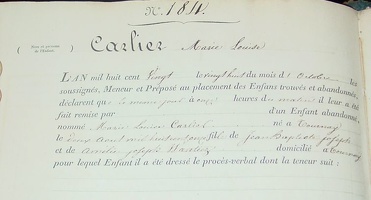 N. 1814.
( Nom et prénoms de l'Enfant. ) Carlier Marie Louise
L'AN mil huit cent vingt le vingt huit du mois d'Octobre les
soussignés, Meneur et Préposé au placement des Enfans trouvés et abandonnés,
déclarent que le même jour à onze heures du matin il leur a été
fait remise par d'un Enfant abandonné,
nommé Marie Louise Carlier né à Tournay
le deux août mil huit cent fil de Jean Baptiste Joseph
et de Amélie Joseph domicilié à Tournay
pour lequel Enfant il a été dressé le procès-verbal dont la teneur suit :